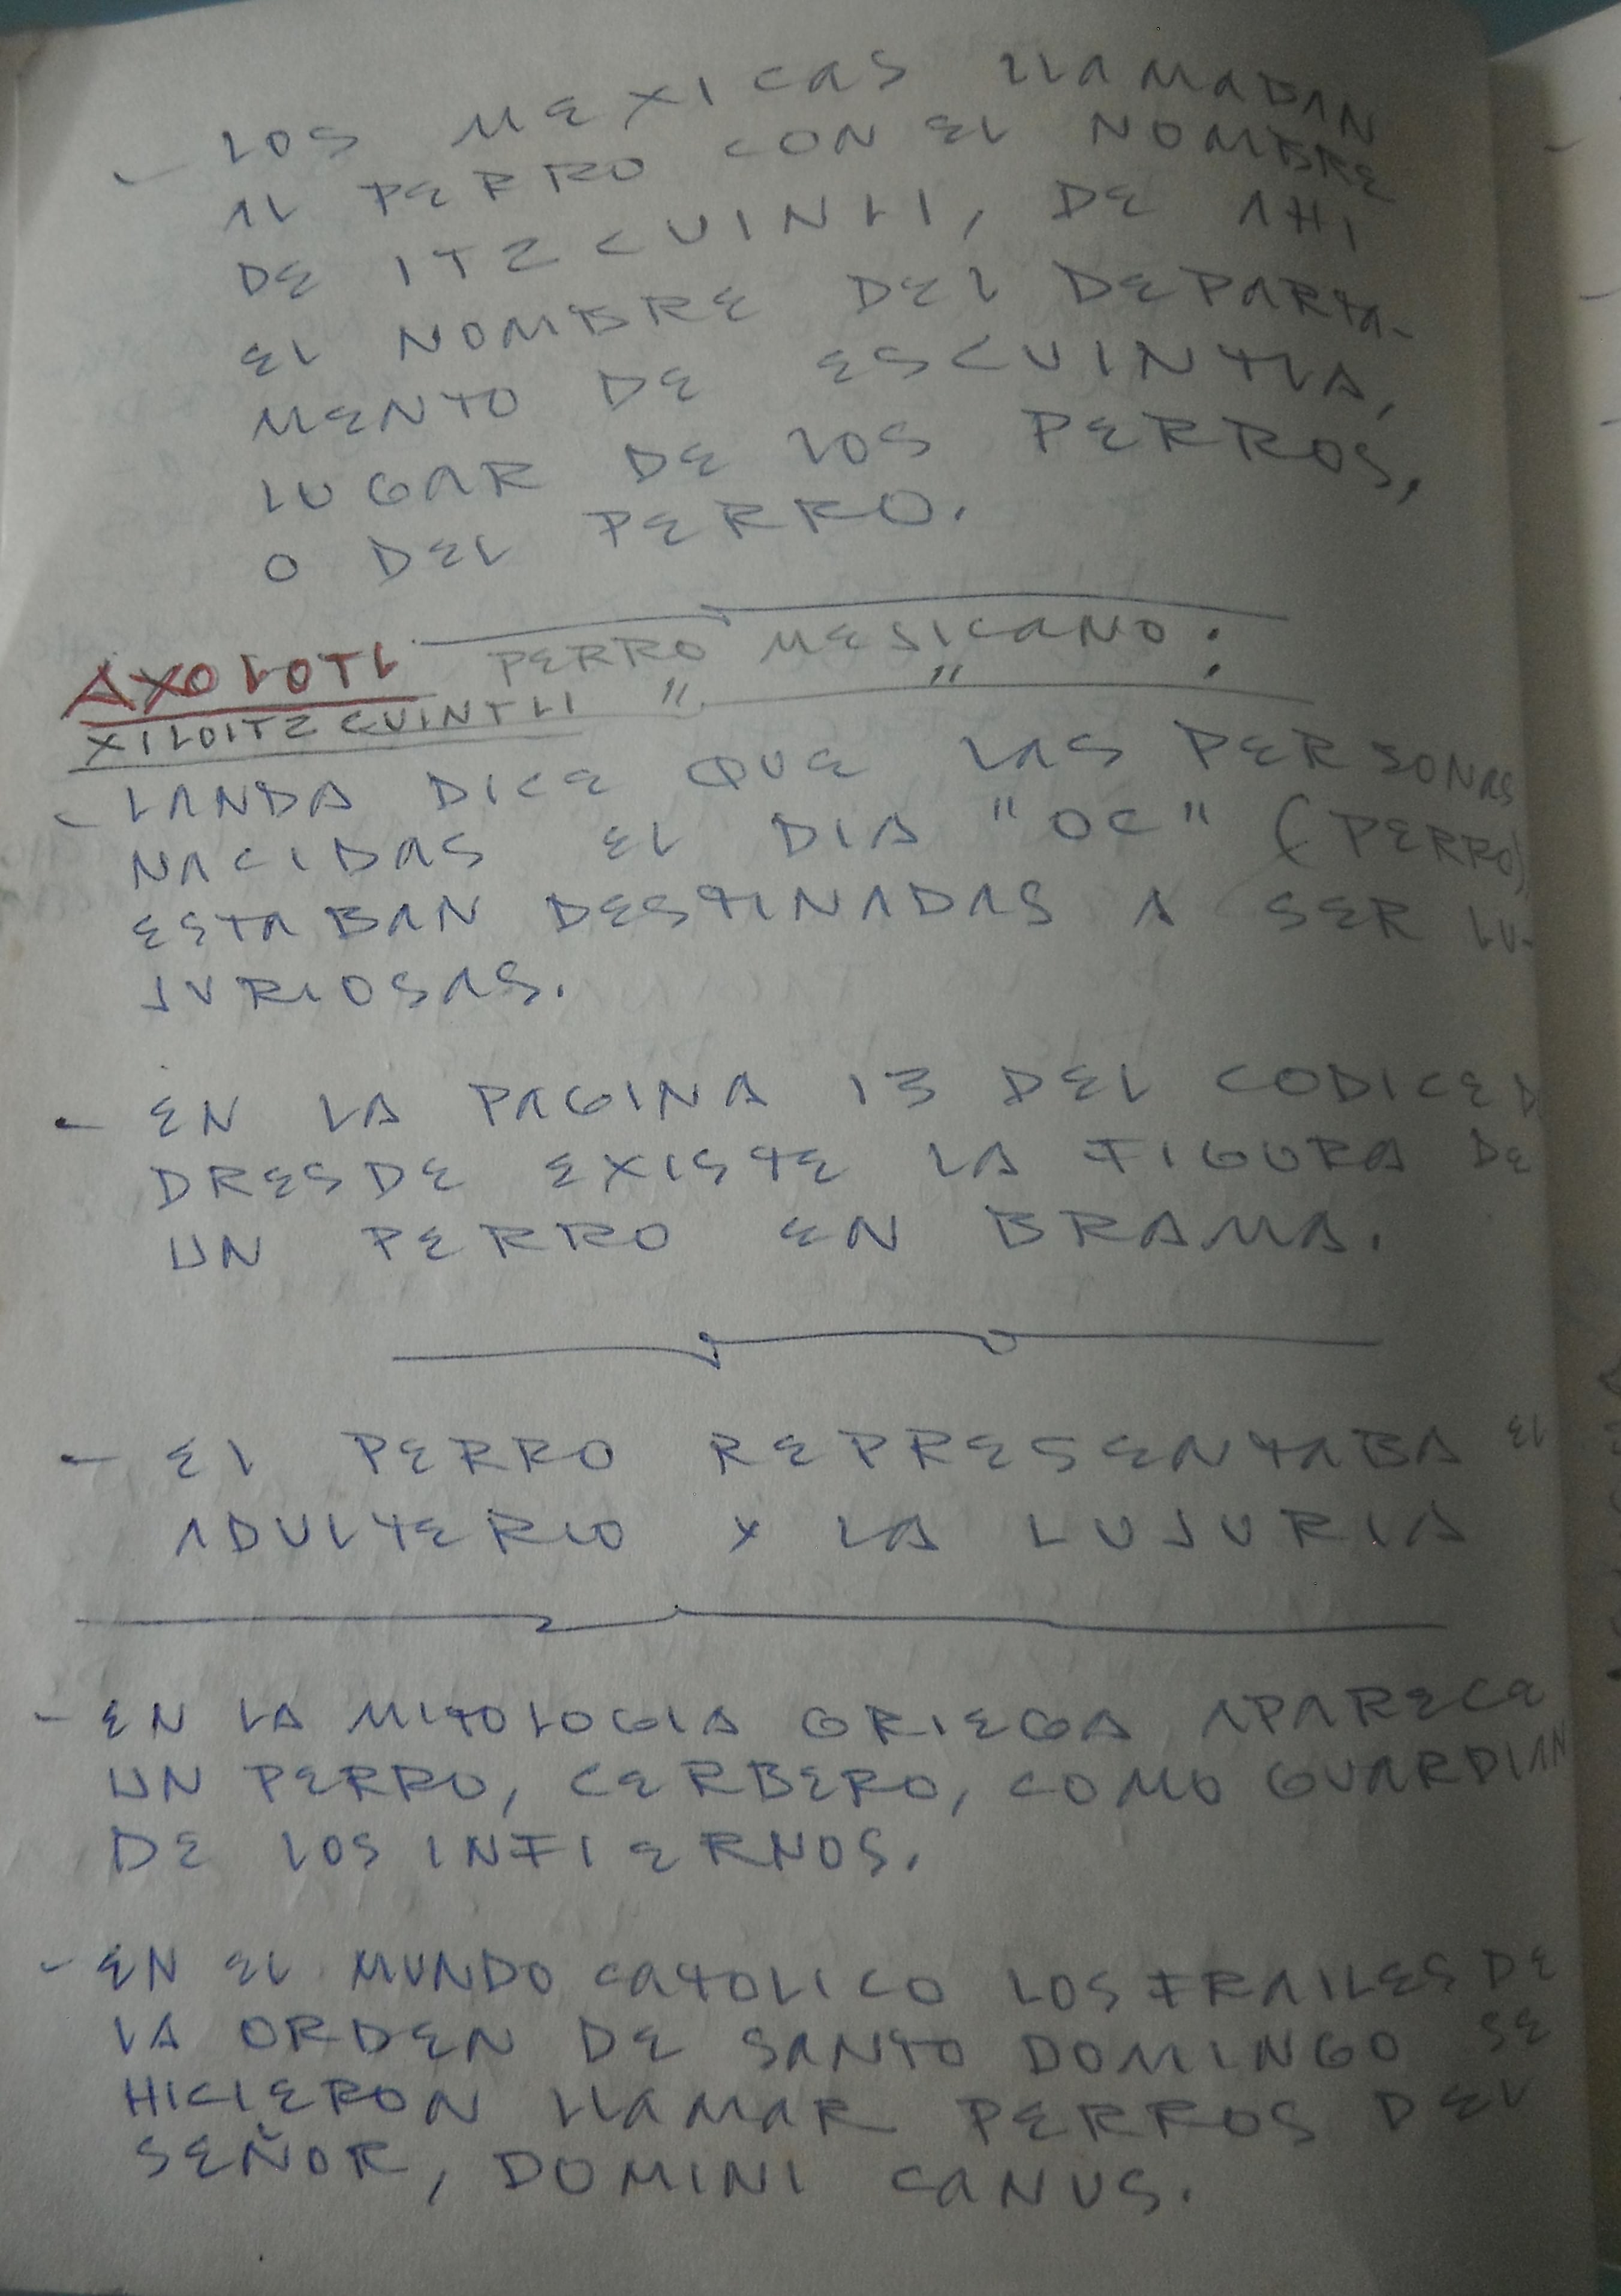 - LOS MEXICAS LLAMABAN
AL PERRO CON EL NOMBRE
DE ITZCUINLI, DE AHI
EL NOMBRE DEL DEPARTA-
MENTO DE ESCUINTLA,
LUGAR DE LOS PERROS,
O DEL PERRO.
AXOLOTL PERRO MESICANO :
XILOITZCUINTLI " " :
- LANDA DICE QUE LAS PERSONAS
NACIDAS EL DIA "OC" (PERRO)
ESTABAN DESTINADAS A SER LU-
JURIOSAS.
- EN LA PAGINA 13 DEL CODICE D
DRESDE EXISTE LA FIGURA DE
UN PERRO EN BRAMA.
- EL PERRO REPRESENTABA EL
ADULTERIO Y LA LUJURIA
- EN LA MITOLOGIA GRIEGA APARECE
UN PERRO, CERBERO, COMO GUARDIAN
DE LOS INFIERNOS.
- EN EL MUNDO CATOLICO LOS FRAILES DE
LA ORDEN DE SANTO DOMINGO SE
HICIERON LLAMAR PERROS DEL
SEÑOR, DOMINI CANUS.